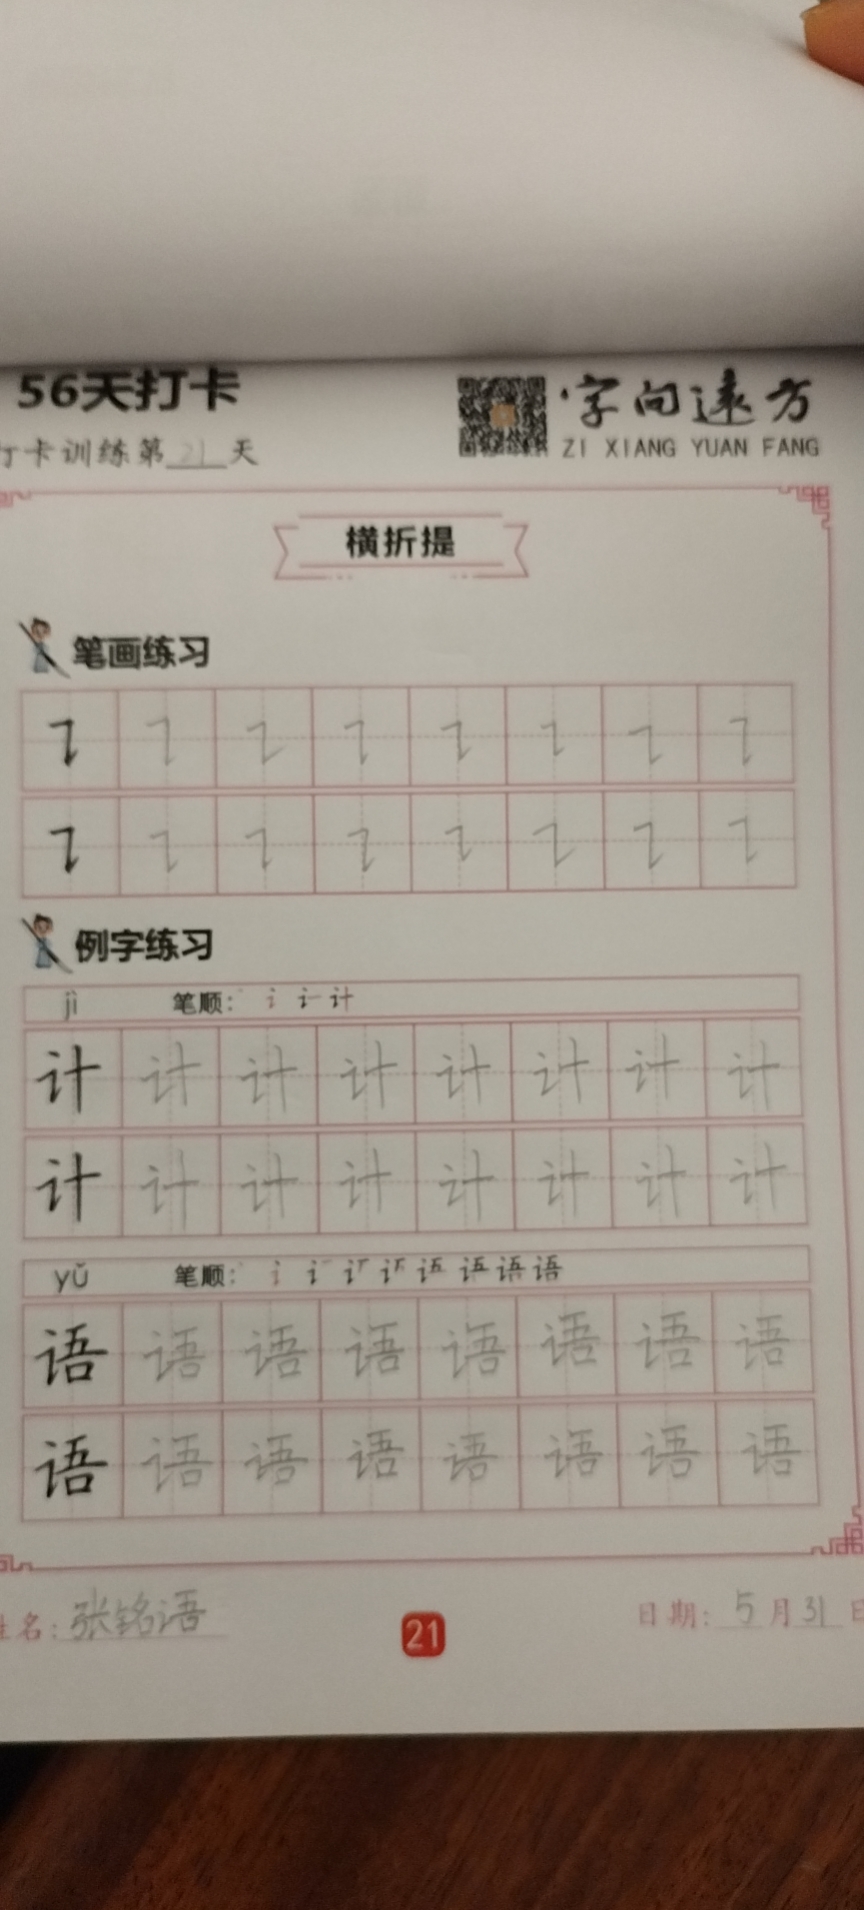 56天打卡
字向远方
打卡训练第21天
ZI XIANG YUAN FANG
横折提
笔画练习
例字练习
jì 笔顺：
计 计 计 计 计 计 计 计
计 计 计 计 计 计 计 计
yǔ 笔顺：
语 语 语 语 语 语 语 语
语 语 语 语 语 语 语 语
姓名：张铭语
21
日期：5月31日